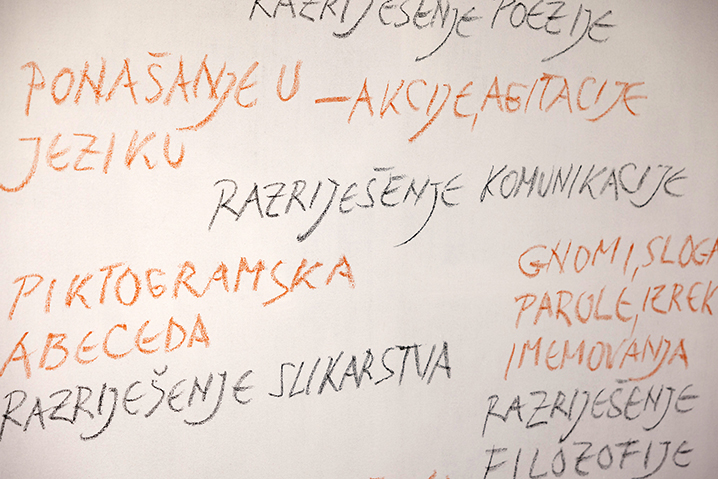 RAZRIJEŠENJE POEZIJE
PONAŠANJE U
JEZIKU
—AKCIJE, AGITACIJE
RAZRIJEŠENJE KOMUNIKACIJE
PIKTOGRAMSKA
ABECEDA
RAZRIJEŠENJE SLIKARSTVA
GNOMI, SLOGA
PAROLE, IZREK
IMEMOVANJA
RAZRIJEŠENJE
FILOZOFIJE